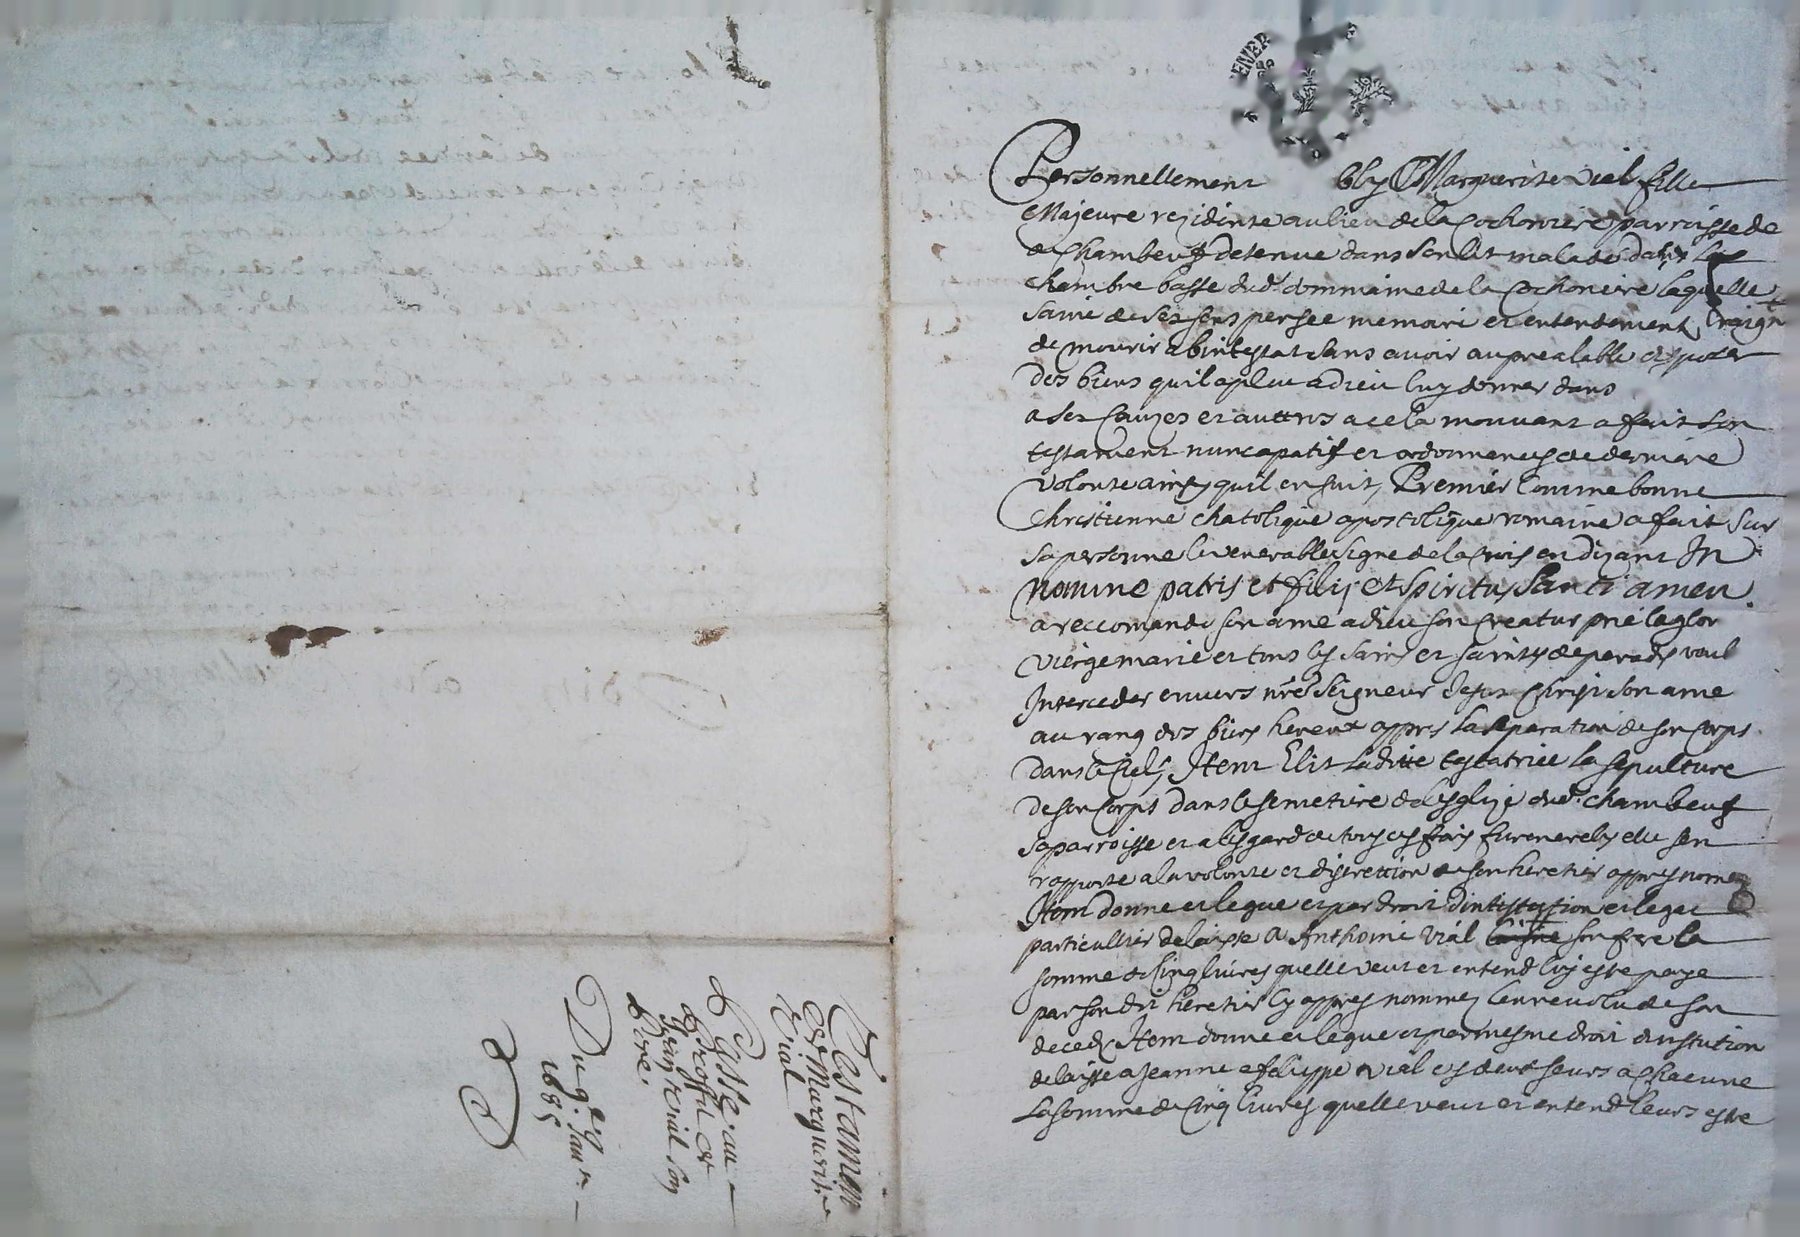 Testament
de Marguerite
Vial
Leysse au
proffit de
Jean Vial son
frere.
Du 9e Janr.
1685
ENER
Personnellement Esy Marguerite Vial fille
Majeure rezidente au lieu de la Cochoniere parroisse de
de Chambeuf detenue dans son lit malade dans la
chambre basse dud. dommaine de la Cochoniere laquelle
saine de ses sens pensee memoire et entendement Craignt
de mourir abintestat sans avoir au prealable dispozer
des biens quil a pleu a dieu luy donner dans
a ses Cauzes et auttres a cela mouvant a fait son
testament nuncapatif et ordonnences de derniere
volonte ainsy quil en suit, Premier Comme bonne
Chrestienne chatolique apostolique romaine a fait sur
sa personne le venerable signe de la Croix en dizant In
nomine patris et filij et spiritus Sancti amen.
a reccomande son ame a dieu son Creatur prie la glor
vierge marie et tous les saints et saintes de paradis voul
Interceder envers nre Seigneur Jesus Christ son ame
au rang des bien hereux appres la separation de son Corps
dans le Ciel, Item Elit laditte testatrice la sepulture
de son Corps dans le semetiere de lesglize dud. chambeuf
sa parroisse et a lesgard de tous ces frais funerereles elle sen
rapporte a la volonte et discrettion de son heretier appres nomez
Item donne et legue et par droit dintistution et legat
particullier delaisse a Anthoine Vial son frere la
somme de Cinq livres quelle veut et entend luy estre paye
par son dit heretier cy appres nommez lan revolu de son
decedz Item donne et legue et par mesme droit dinstution
delaisse a Jeanne e felippe Vial ces deux seurs a Chacune
La somme de Cinq livres quelle veut et entend leurs estre